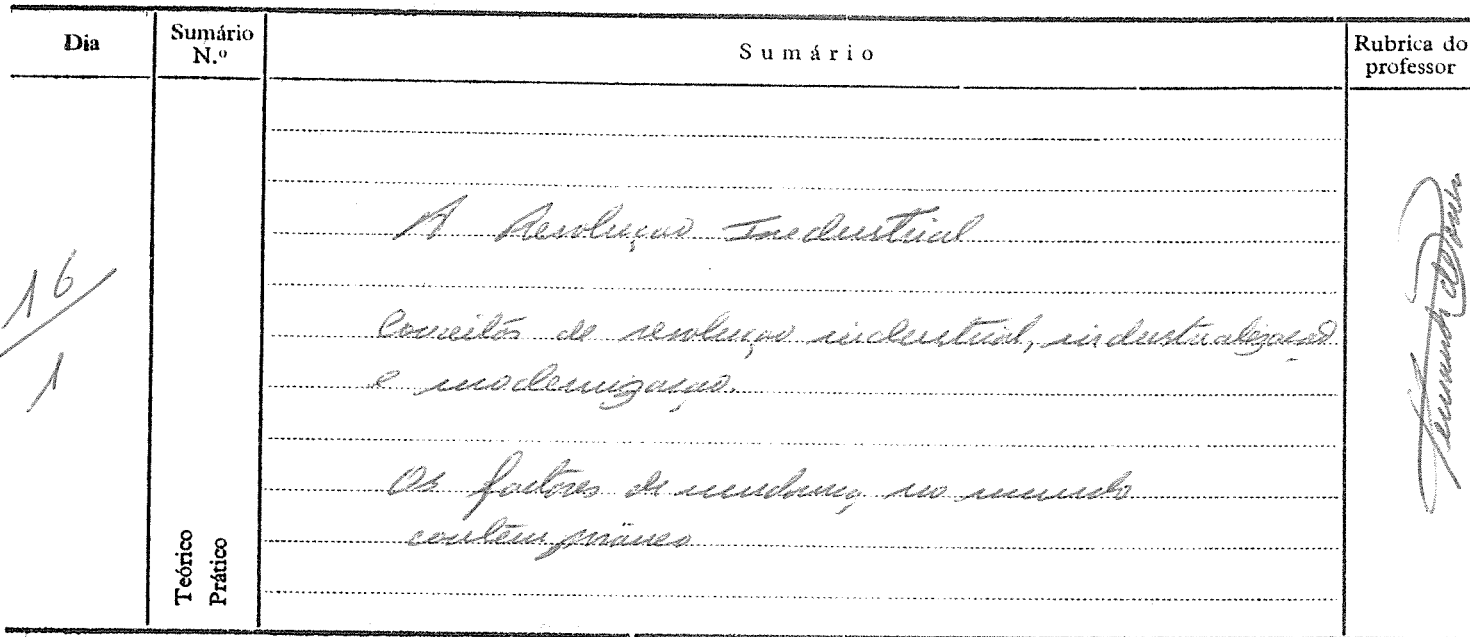 Dia
Sumário N.º
Sumário
Rubrica do professor
A Revolução Industrial
16/1
Conceitos de revolução industrial, industrialização
e modernização.
Os factores de mudança no mundo
contemporâneo
Teórico
Prático